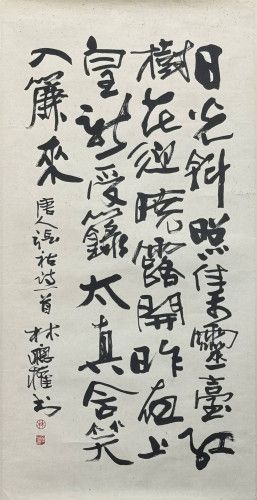 日光斜照集靈臺紅
樹花迎曉露開昨夜上
皇新受籙太真含笑
入簾來
唐人張祜詩一首 林權書